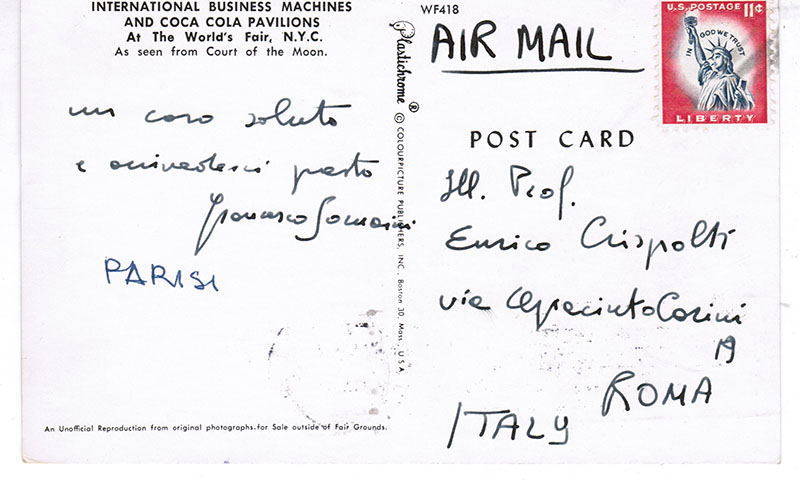 INTERNATIONAL BUSINESS MACHINES
AND COCA COLA PAVILIONS
At The World's Fair, N.Y.C.
As seen from Court of the Moon.
un caro saluto
e arrivederci presto
Francesco Somaini
PARISI
An Unofficial Reproduction from original photographs.for Sale outside of Fair Grounds.
Plastichrome ® © COLOURPICTURE PUBLISHERS, INC. Boston 30, Mass., U.S.A.
WF418
AIR MAIL
U.S. POSTAGE 11¢
IN GOD WE TRUST
LIBERTY
POST CARD
Ill. Prof.
Enrico Crispolti
via Giacinto Carini
19
ROMA
ITALY